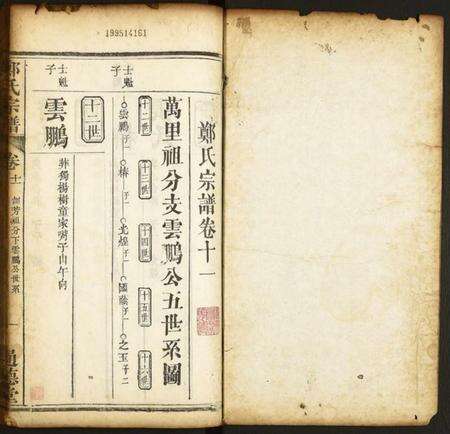 199514161
鄭氏宗譜卷十一
萬里祖分支雲鵬公五世系圖
十二世
十三世
十四世
十五世
十六世
士魁子
雲鵬子一
椿子一
光煌子一
國蔭子一
之玉子二
士魁子
十二世
雲鵬
葬獨楊樹童家嘴子山午向
鄭氏宗譜
卷十一
雲鵬公世系
一
通德堂